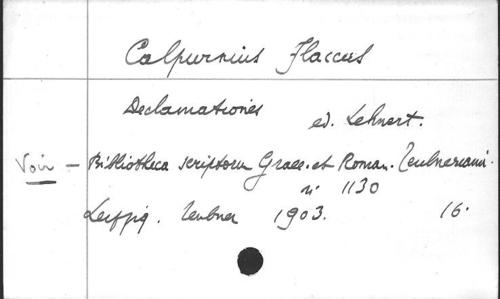 Calpurnius Flaccus
Declamationes ed. Lehnert.
Voir - Bibliotheca scriptorum Graec. et Roman. Teubneriana.
n° 1130
Leipzig. Teubner 1903. 16.